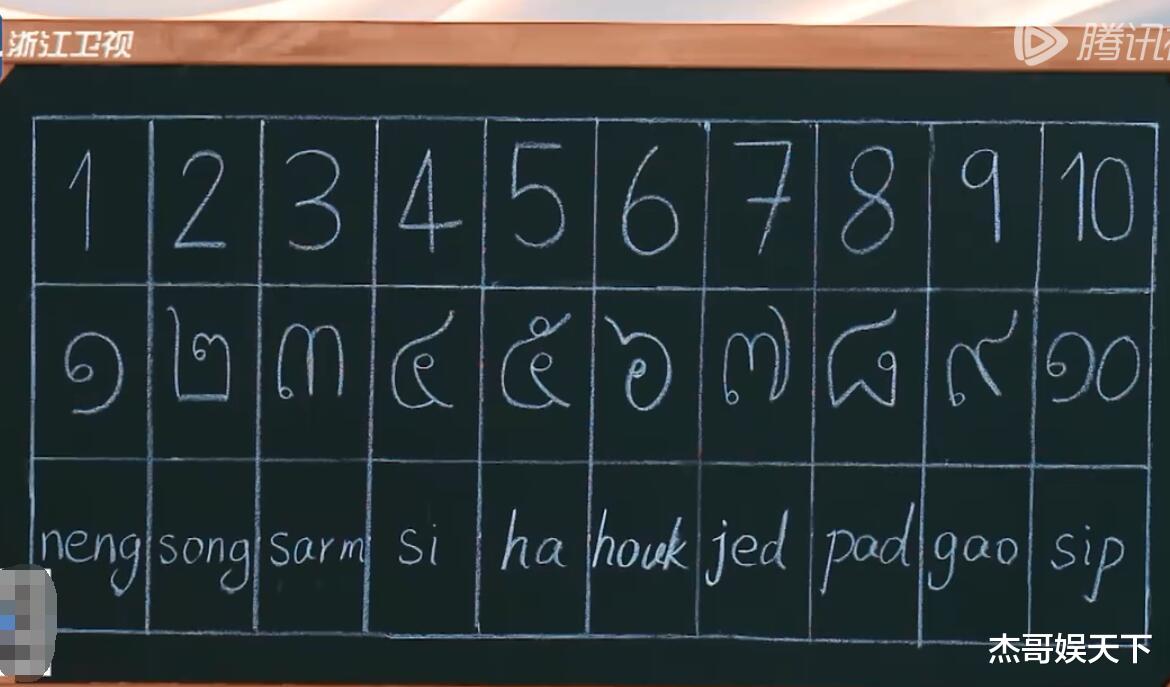 浙江卫视
腾讯
1 2 3 4 5 6 7 8 9 10
๑ ๒ ๓ ๔ ๕ ๖ ๗ ๘ ๙ ๑๐
neng song sarm si ha houk jed pad gao sip
杰哥娱天下